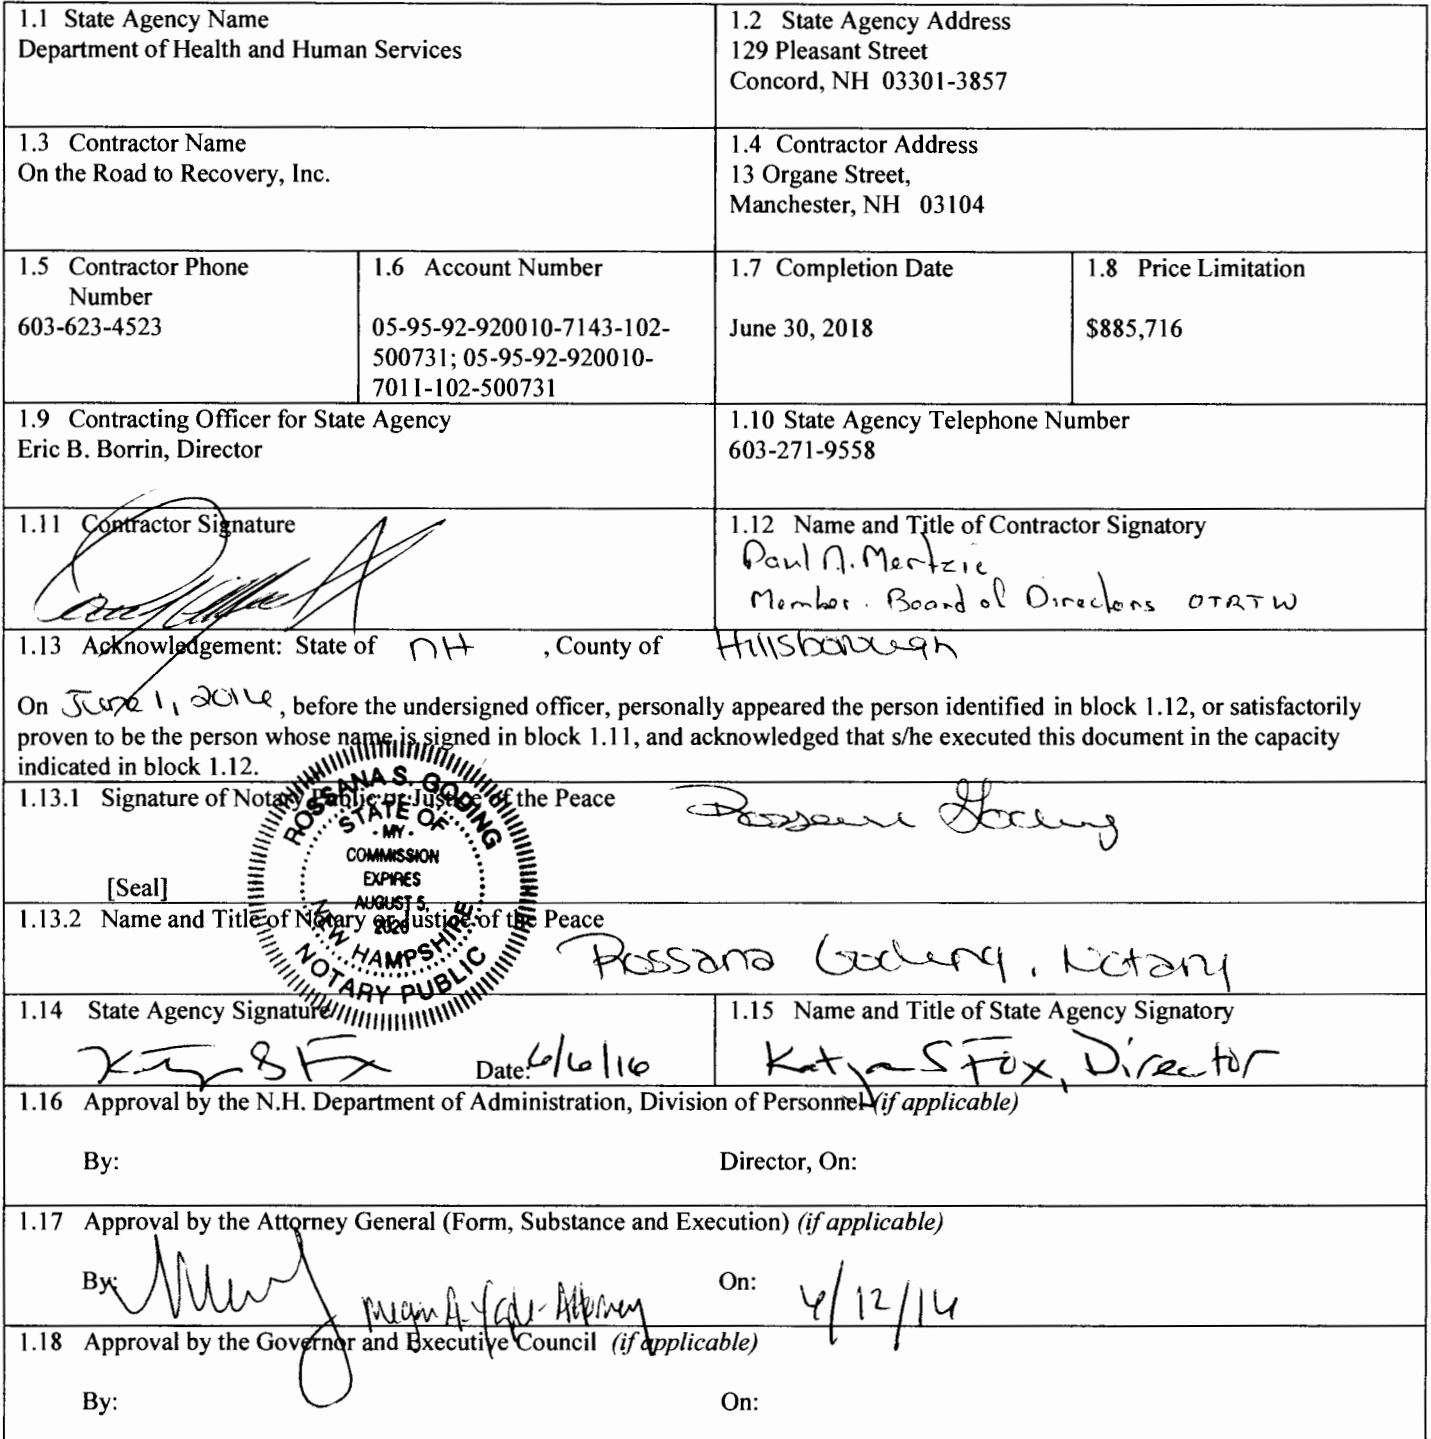 1.1 State Agency Name
Department of Health and Human Services
1.2 State Agency Address
129 Pleasant Street
Concord, NH 03301-3857
1.3 Contractor Name
On the Road to Recovery, Inc.
1.4 Contractor Address
13 Organe Street,
Manchester, NH 03104
1.5 Contractor Phone
Number
603-623-4523
1.6 Account Number
05-95-92-920010-7143-102-
500731; 05-95-92-920010-
7011-102-500731
1.7 Completion Date
June 30, 2018
1.8 Price Limitation
$885,716
1.9 Contracting Officer for State Agency
Eric B. Borrin, Director
1.10 State Agency Telephone Number
603-271-9558
1.11 Contractor Signature
1.12 Name and Title of Contractor Signatory
Paul A. Mertzic
Member. Board of Directors OTRTW
1.13 Acknowledgement: State of NH , County of Hillsborough
On June 1, 2016, before the undersigned officer, personally appeared the person identified in block 1.12, or satisfactorily
proven to be the person whose name is signed in block 1.11, and acknowledged that s/he executed this document in the capacity
indicated in block 1.12.
1.13.1 Signature of Notary Public or Justice of the Peace
Rossana Goding
[Seal]
ROSSANA S. GODING
STATE OF
- MY -
COMMISSION
EXPIRES
AUGUST 5,
2020
NEW HAMPSHIRE
NOTARY PUBLIC
1.13.2 Name and Title of Notary or Justice of the Peace
Rossana Goding, Notary
1.14 State Agency Signature
Date: 6/6/16
1.15 Name and Title of State Agency Signatory
Katja S Fox, Director
1.16 Approval by the N.H. Department of Administration, Division of Personnel (if applicable)
By:
Director, On:
1.17 Approval by the Attorney General (Form, Substance and Execution) (if applicable)
By: Megan A. - Attorney
On: 6/12/16
1.18 Approval by the Governor and Executive Council (if applicable)
By:
On: